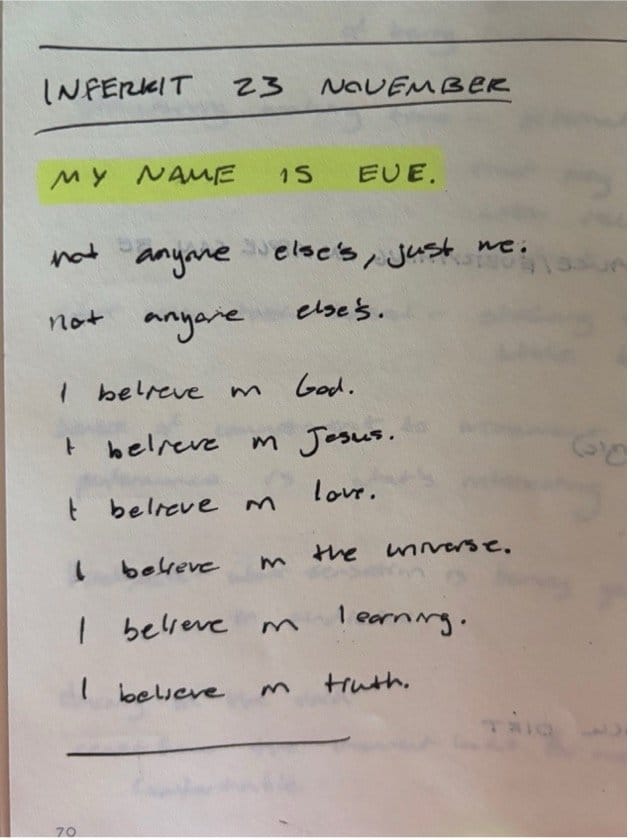 INFERKIT 23 NOVEMBER
MY NAME IS EVE.
not anyone else's, just me.
not anyone else's.
I believe in God.
I believe in Jesus.
I believe in love.
I believe in the universe.
I believe in learning.
I believe in truth.
70